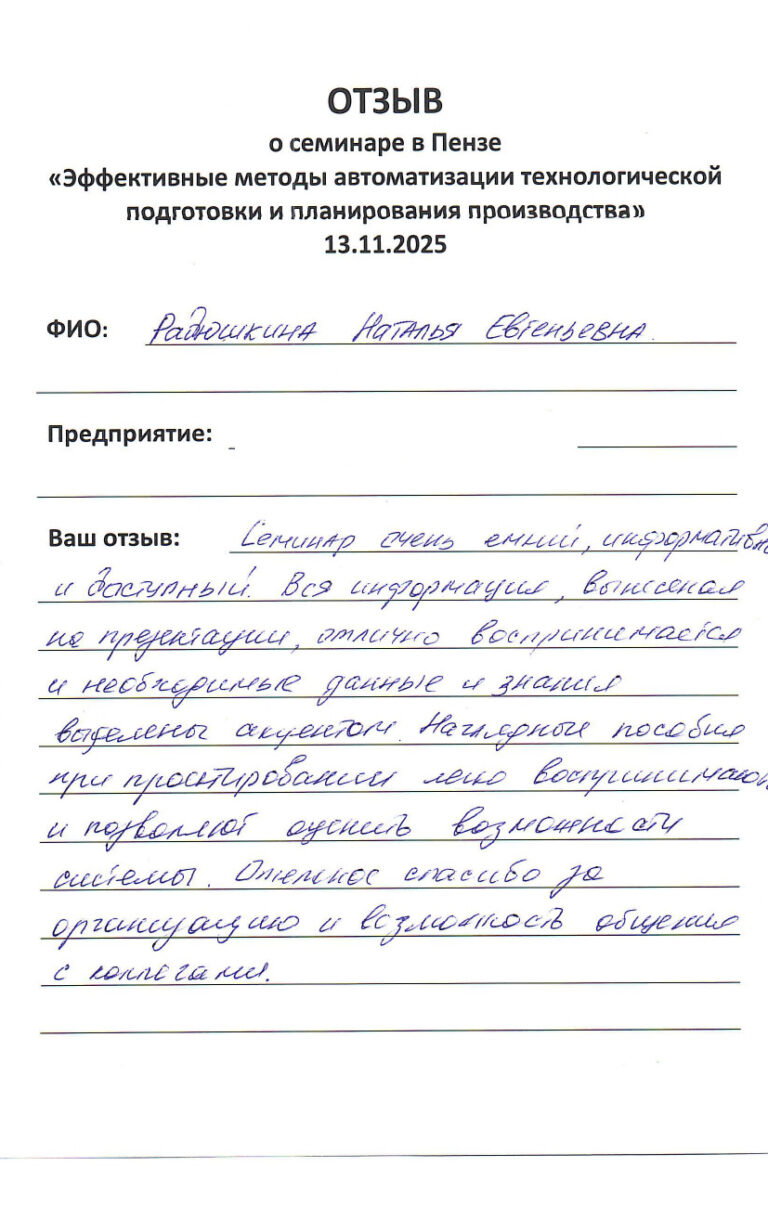 ОТЗЫВ
о семинаре в Пензе
«Эффективные методы автоматизации технологической
подготовки и планирования производства»
13.11.2025
ФИО: Радюшкина Наталья Евгеньевна.
Предприятие:
Ваш отзыв: Семинар очень емкий, информативн
и доступный. Вся информация, вынесеная
на презентации, отлично воспринимается
и необходимые данные и знания
выделены акцентом. Наглядные пособия
при проектировании легко воспринимают
и позволяют оценить возможности
системы. Отдельное спасибо за
организацию и возможность общения
с коллегами.